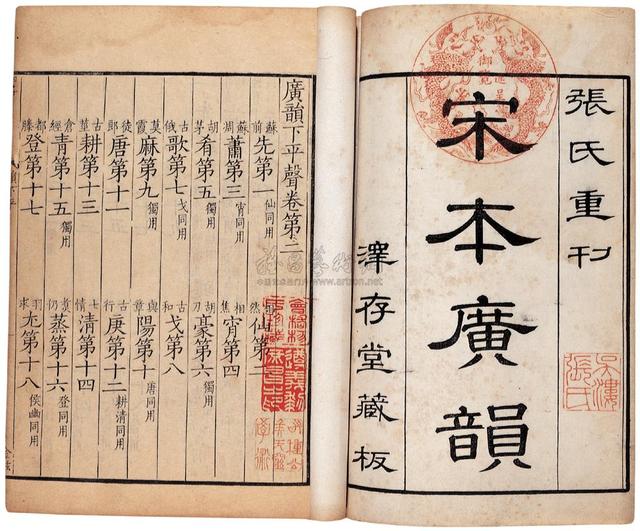 張氏重刊
宋本廣韻
澤存堂藏板
吳漊張氏
御覽
進呈
廣韻下平聲卷第二
蘇前先第一仙同用 然仙第二
蘇凋蕭第三宵同用 相焦宵第四
胡茅肴第五獨用 胡刀豪第六獨用
古俄歌第七戈同用 古和戈第八
莫霞麻第九獨用 與章陽第十唐同用
徒郎唐第十一 古行庚第十二耕清同用
古莖耕第十三 七情清第十四
倉經青第十五獨用 煑仍蒸第十六登同用
都滕登第十七 羽求尤第十八侯幽同用
www.artron.net